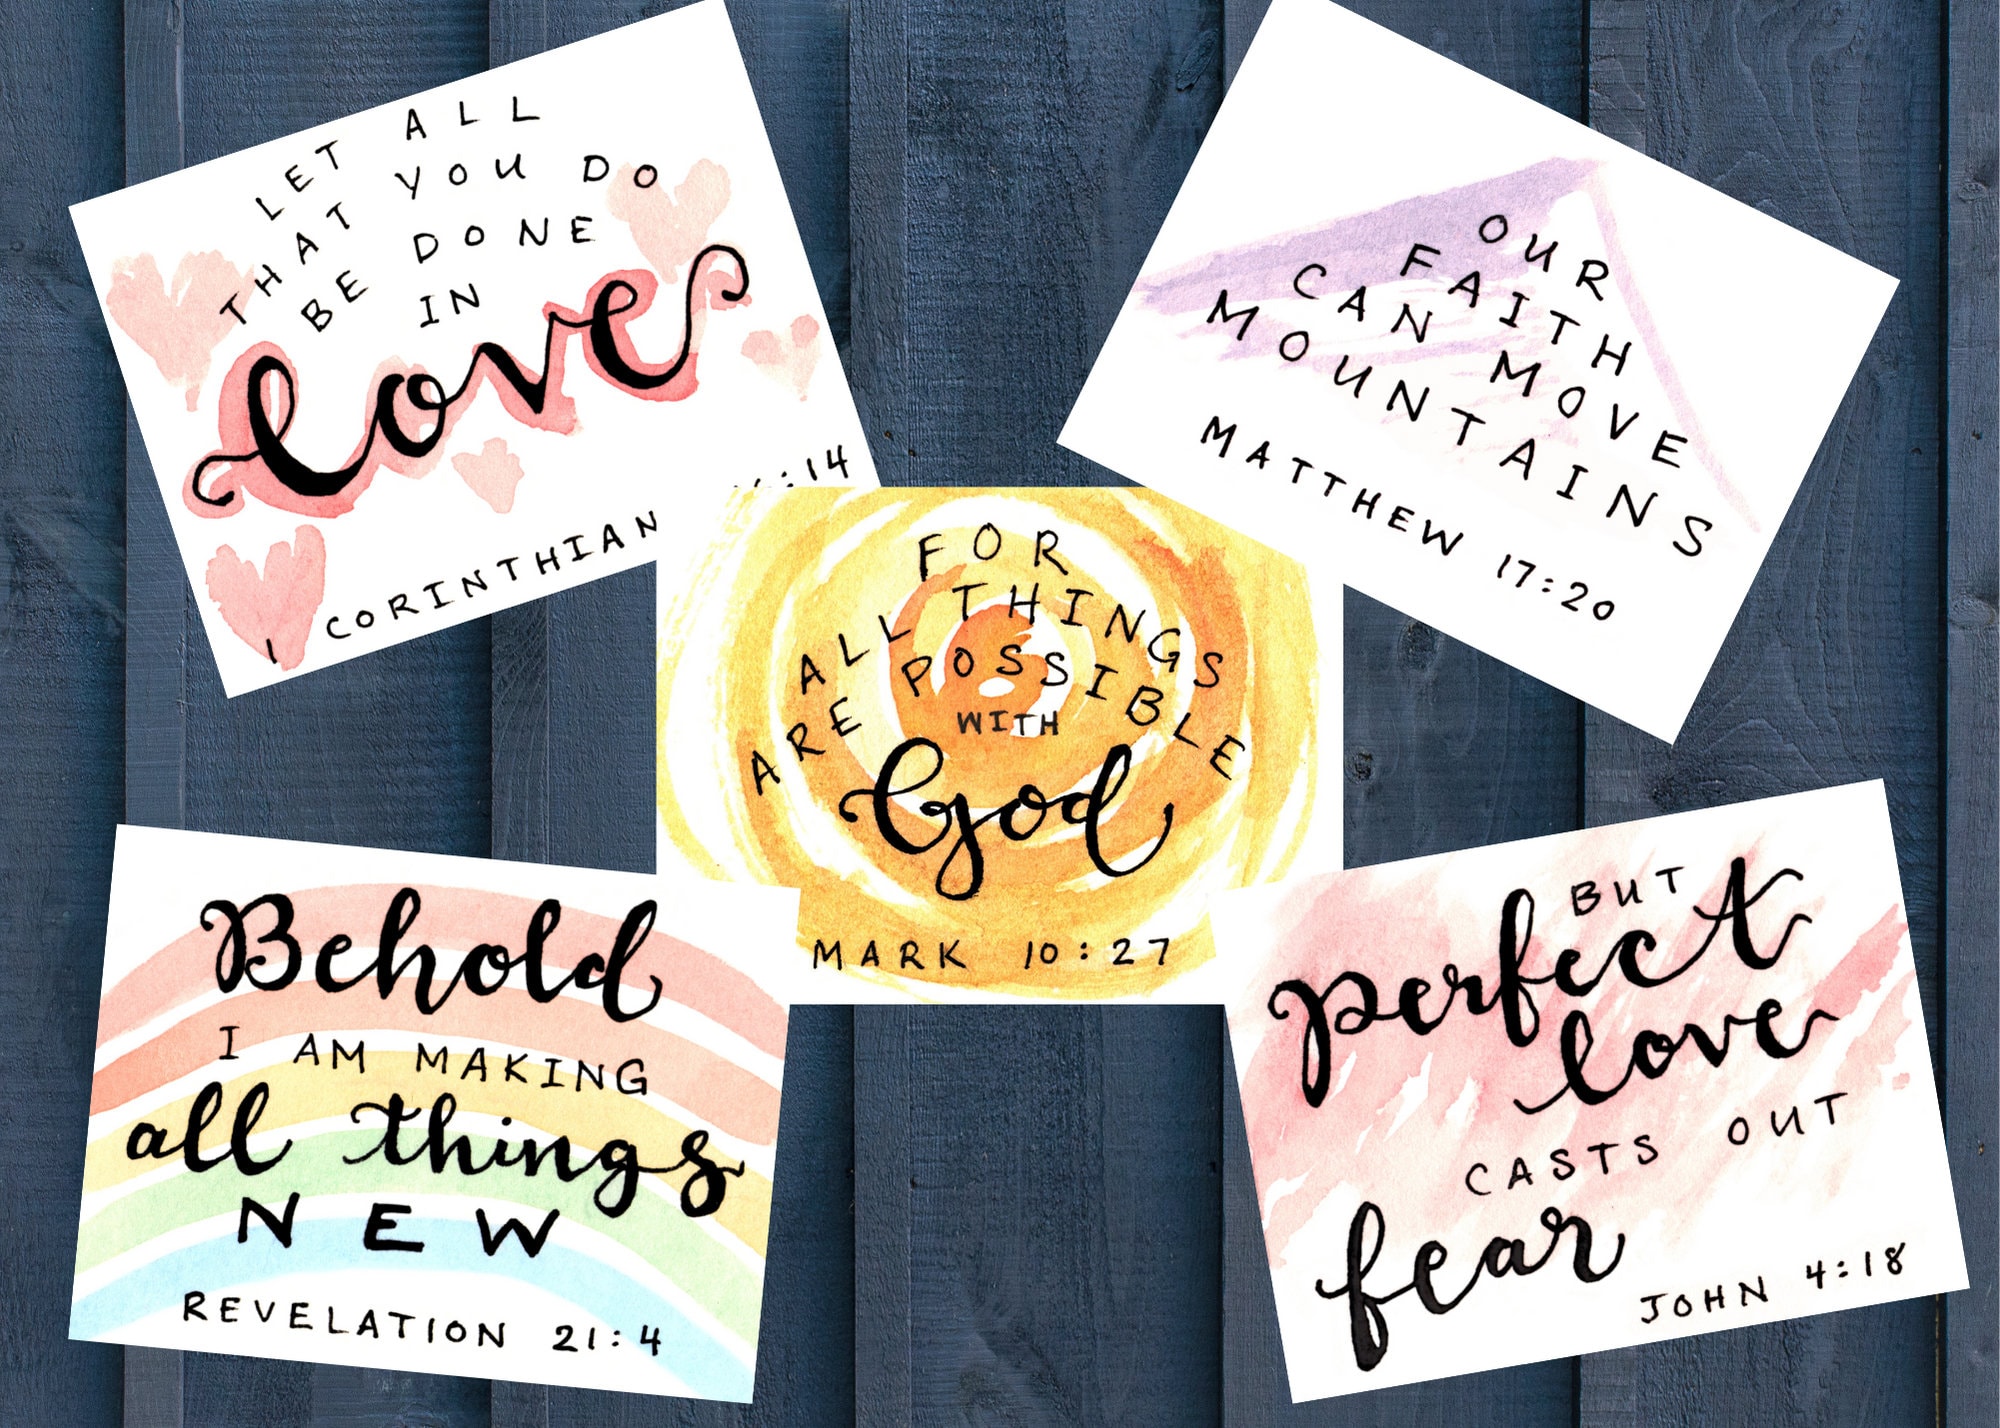 LET ALL
THAT YOU DO
BE DONE
IN
love
1 CORINTHIAN :14
OUR
FAITH
CAN MOVE
MOUNTAINS
MATTHEW 17:20
FOR
ALL THINGS
ARE POSSIBLE
WITH
God
MARK 10:27
Behold
I AM MAKING
all things
NEW
REVELATION 21:4
BUT
perfect
love
CASTS OUT
fear
JOHN 4:18